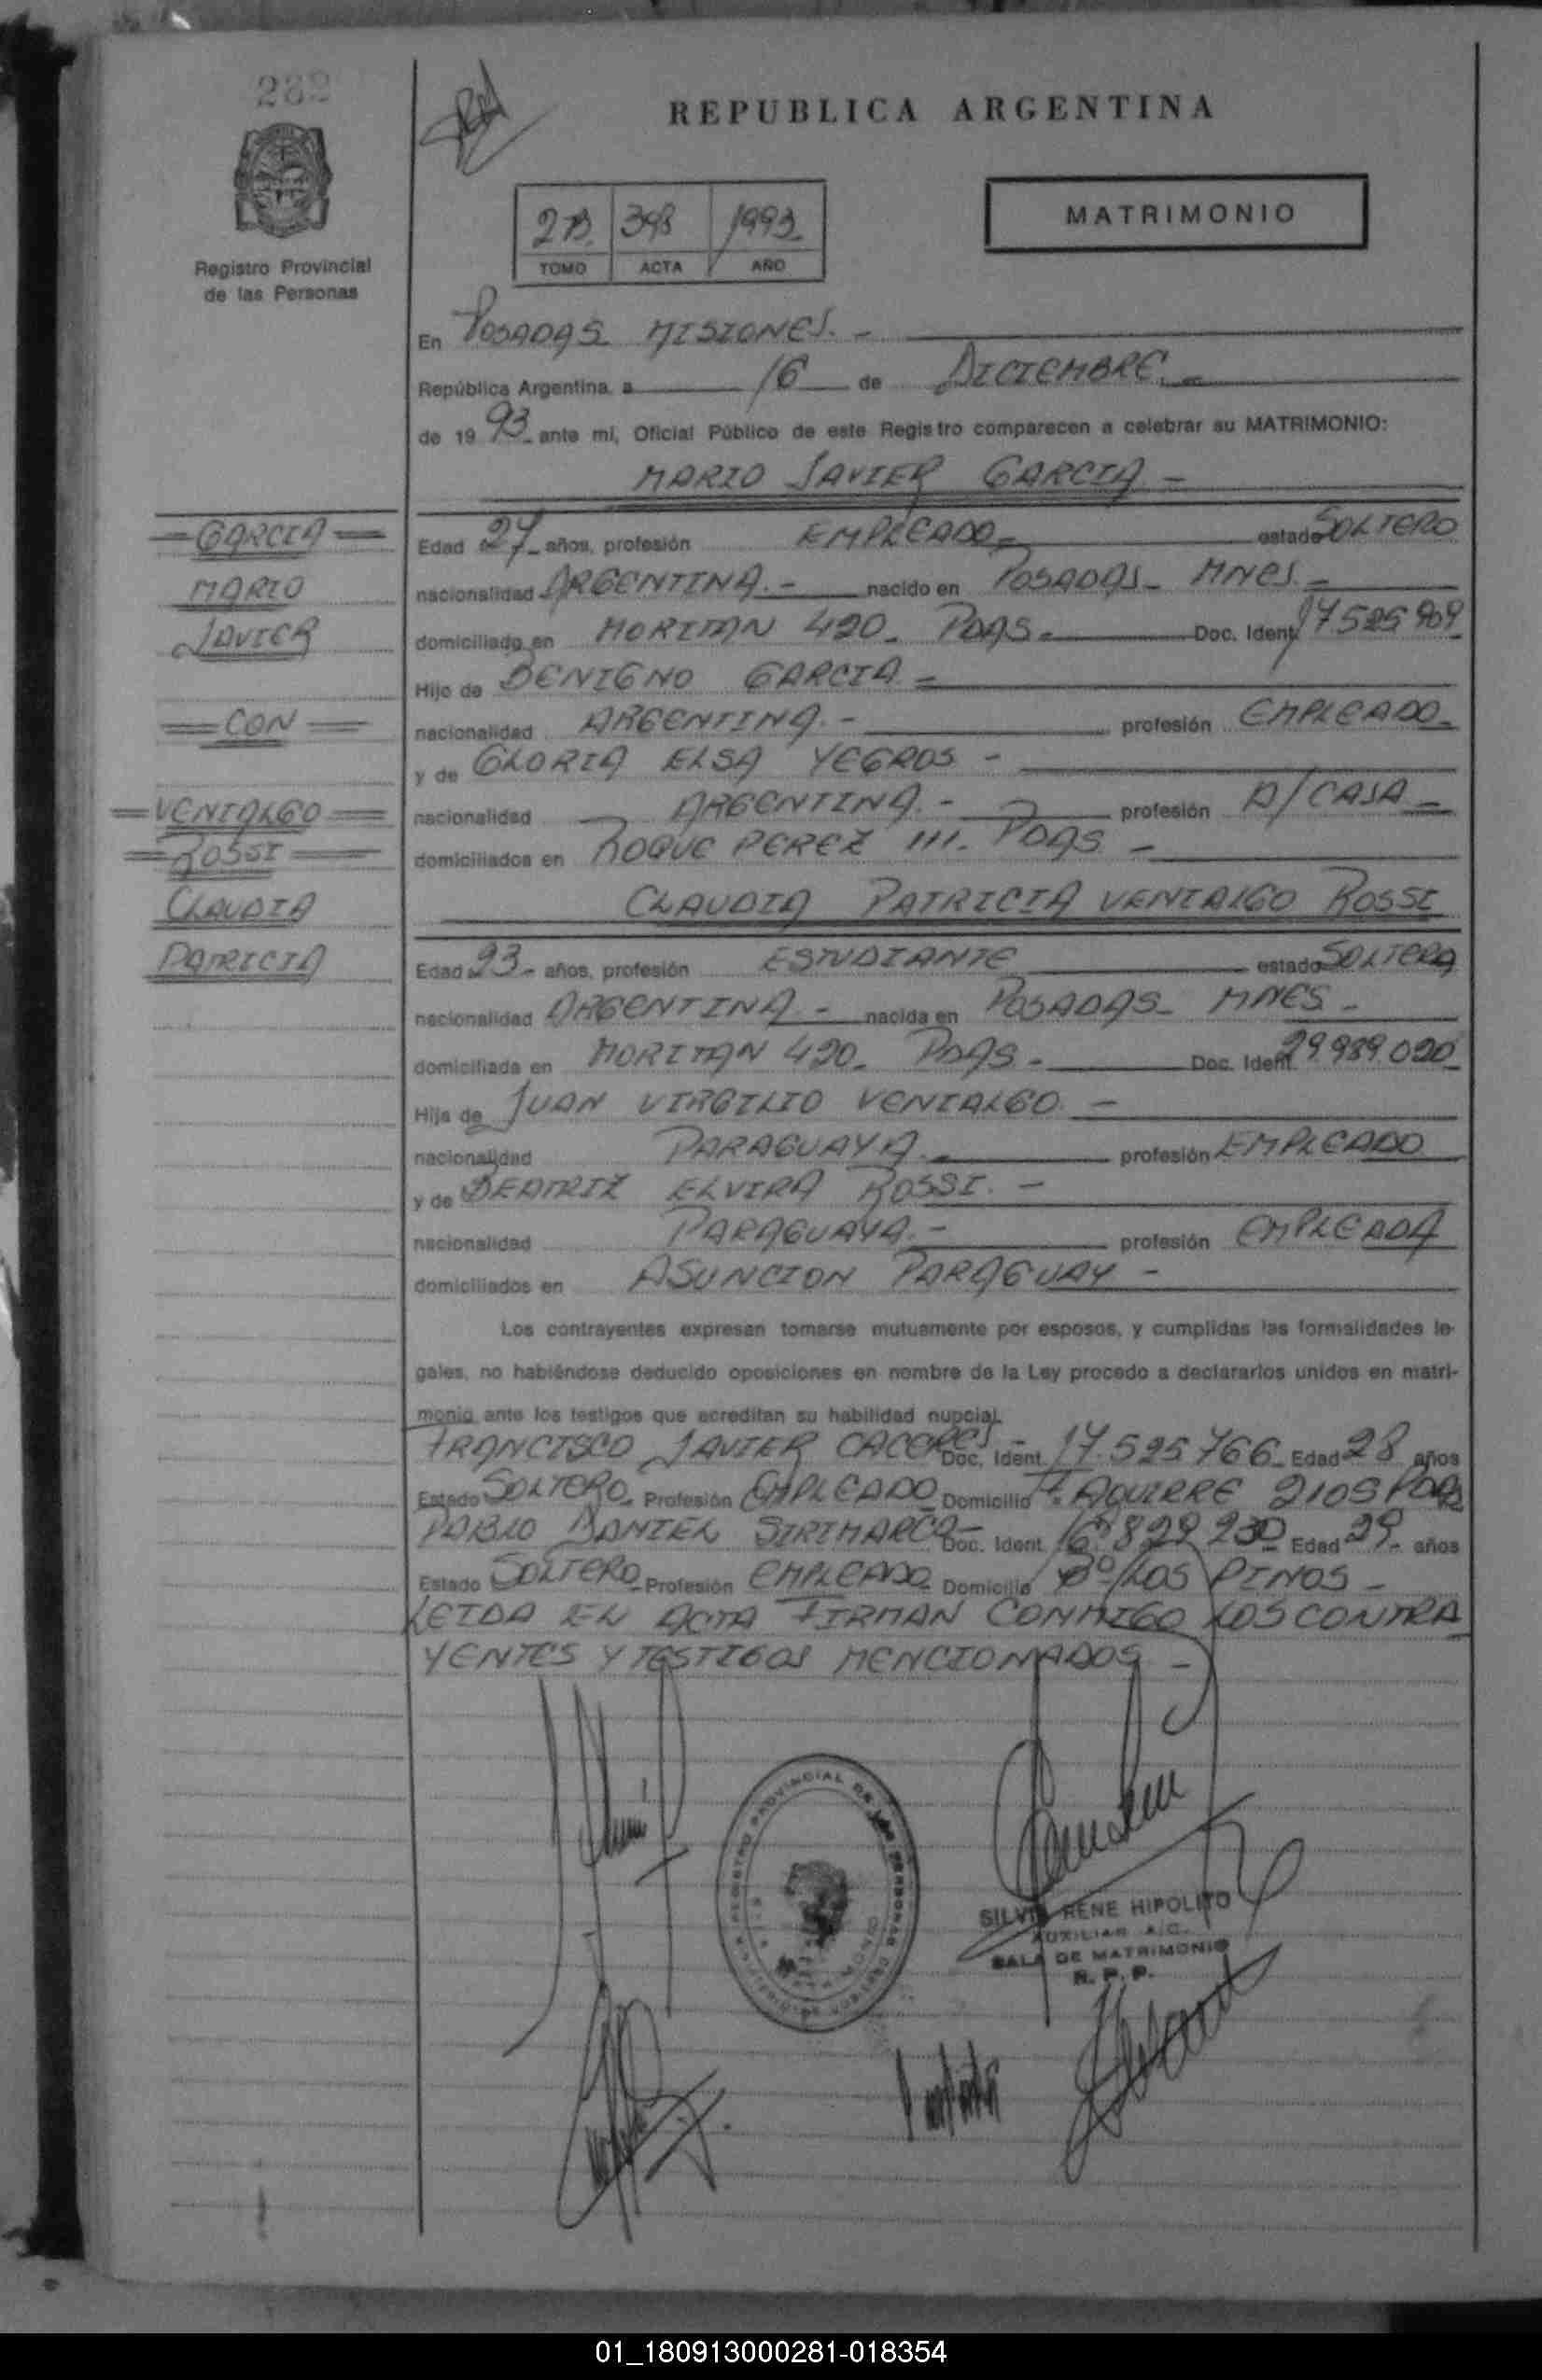 282
REPUBLICA ARGENTINA
Registro Provincial
de las Personas
2B. 398 1993
TOMO ACTA AÑO
MATRIMONIO
En POSADAS MISIONES. -
República Argentina, a 16 de DICIEMBRE. -
de 19 93 ante mi, Oficial Público de este Registro comparecen a celebrar su MATRIMONIO:
MARIO JAVIER GARCIA -
= GARCIA =
MARIO
JAVIER
= CON =
= VENIALGO =
= ROSSI =
CLAUDIA
PATRICIA
Edad 27 años, profesión EMPLEADO - estado SOLTERO
nacionalidad ARGENTINA. - nacido en POSADAS - MNES. -
domiciliado en MORITAN 420 - PDAS - Doc. Ident. 17 525 909
Hijo de BENIGNO GARCIA -
nacionalidad ARGENTINA. - profesión EMPLEADO -
y de GLORIA ELSA YEGROS -
nacionalidad ARGENTINA. - profesión A/ CASA -
domiciliados en ROQUE PEREZ 111. PDAS -
CLAUDIA PATRICIA VENIALGO ROSSI
Edad 23 - años, profesión ESTUDIANTE estado SOLTERA
nacionalidad ARGENTINA - nacida en POSADAS - MNES -
domiciliada en MORITAN 420 - PDAS - Doc. Ident. 29 989.020
Hija de JUAN VIRGILIO VENIALGO -
nacionalidad PARAGUAYA. profesión EMPLEADO
y de BEATRIZ ELVIRA ROSSI. -
nacionalidad PARAGUAYA. - profesión EMPLEADA
domiciliados en ASUNCION PARAGUAY -
Los contrayentes expresan tomarse mutuamente por esposos, y cumplidas las formalidades le-
gales, no habiéndose deducido oposiciones en nombre de la Ley procedo a declararlos unidos en matri-
monio ante los testigos que acreditan su habilidad nupcial.
FRANCISCO JAVIER CACERES - Doc. Ident. 17.525 766 - Edad 28 años
Estado SOLTERO. Profesión EMPLEADO Domicilio F. AGUIRRE 2109 PDAS
PABLO DANIEL SIRIMARCO - Doc. Ident. 16.829 230 Edad 29 - años
Estado SOLTERO Profesión EMPLEADO Domicilio Bº/LOS PINOS -
LEIDA EL ACTA FIRMAN CONMIGO LOS CONTRA
YENTES Y TESTIGOS MENCIONADOS -
REGISTRO PROVINCIAL DE LAS PERSONAS
SILVIA RENE HIPOLITO
AUXILIAR A/C.
SALA DE MATRIMONIO
R. P. P.
01_180913000281-018354